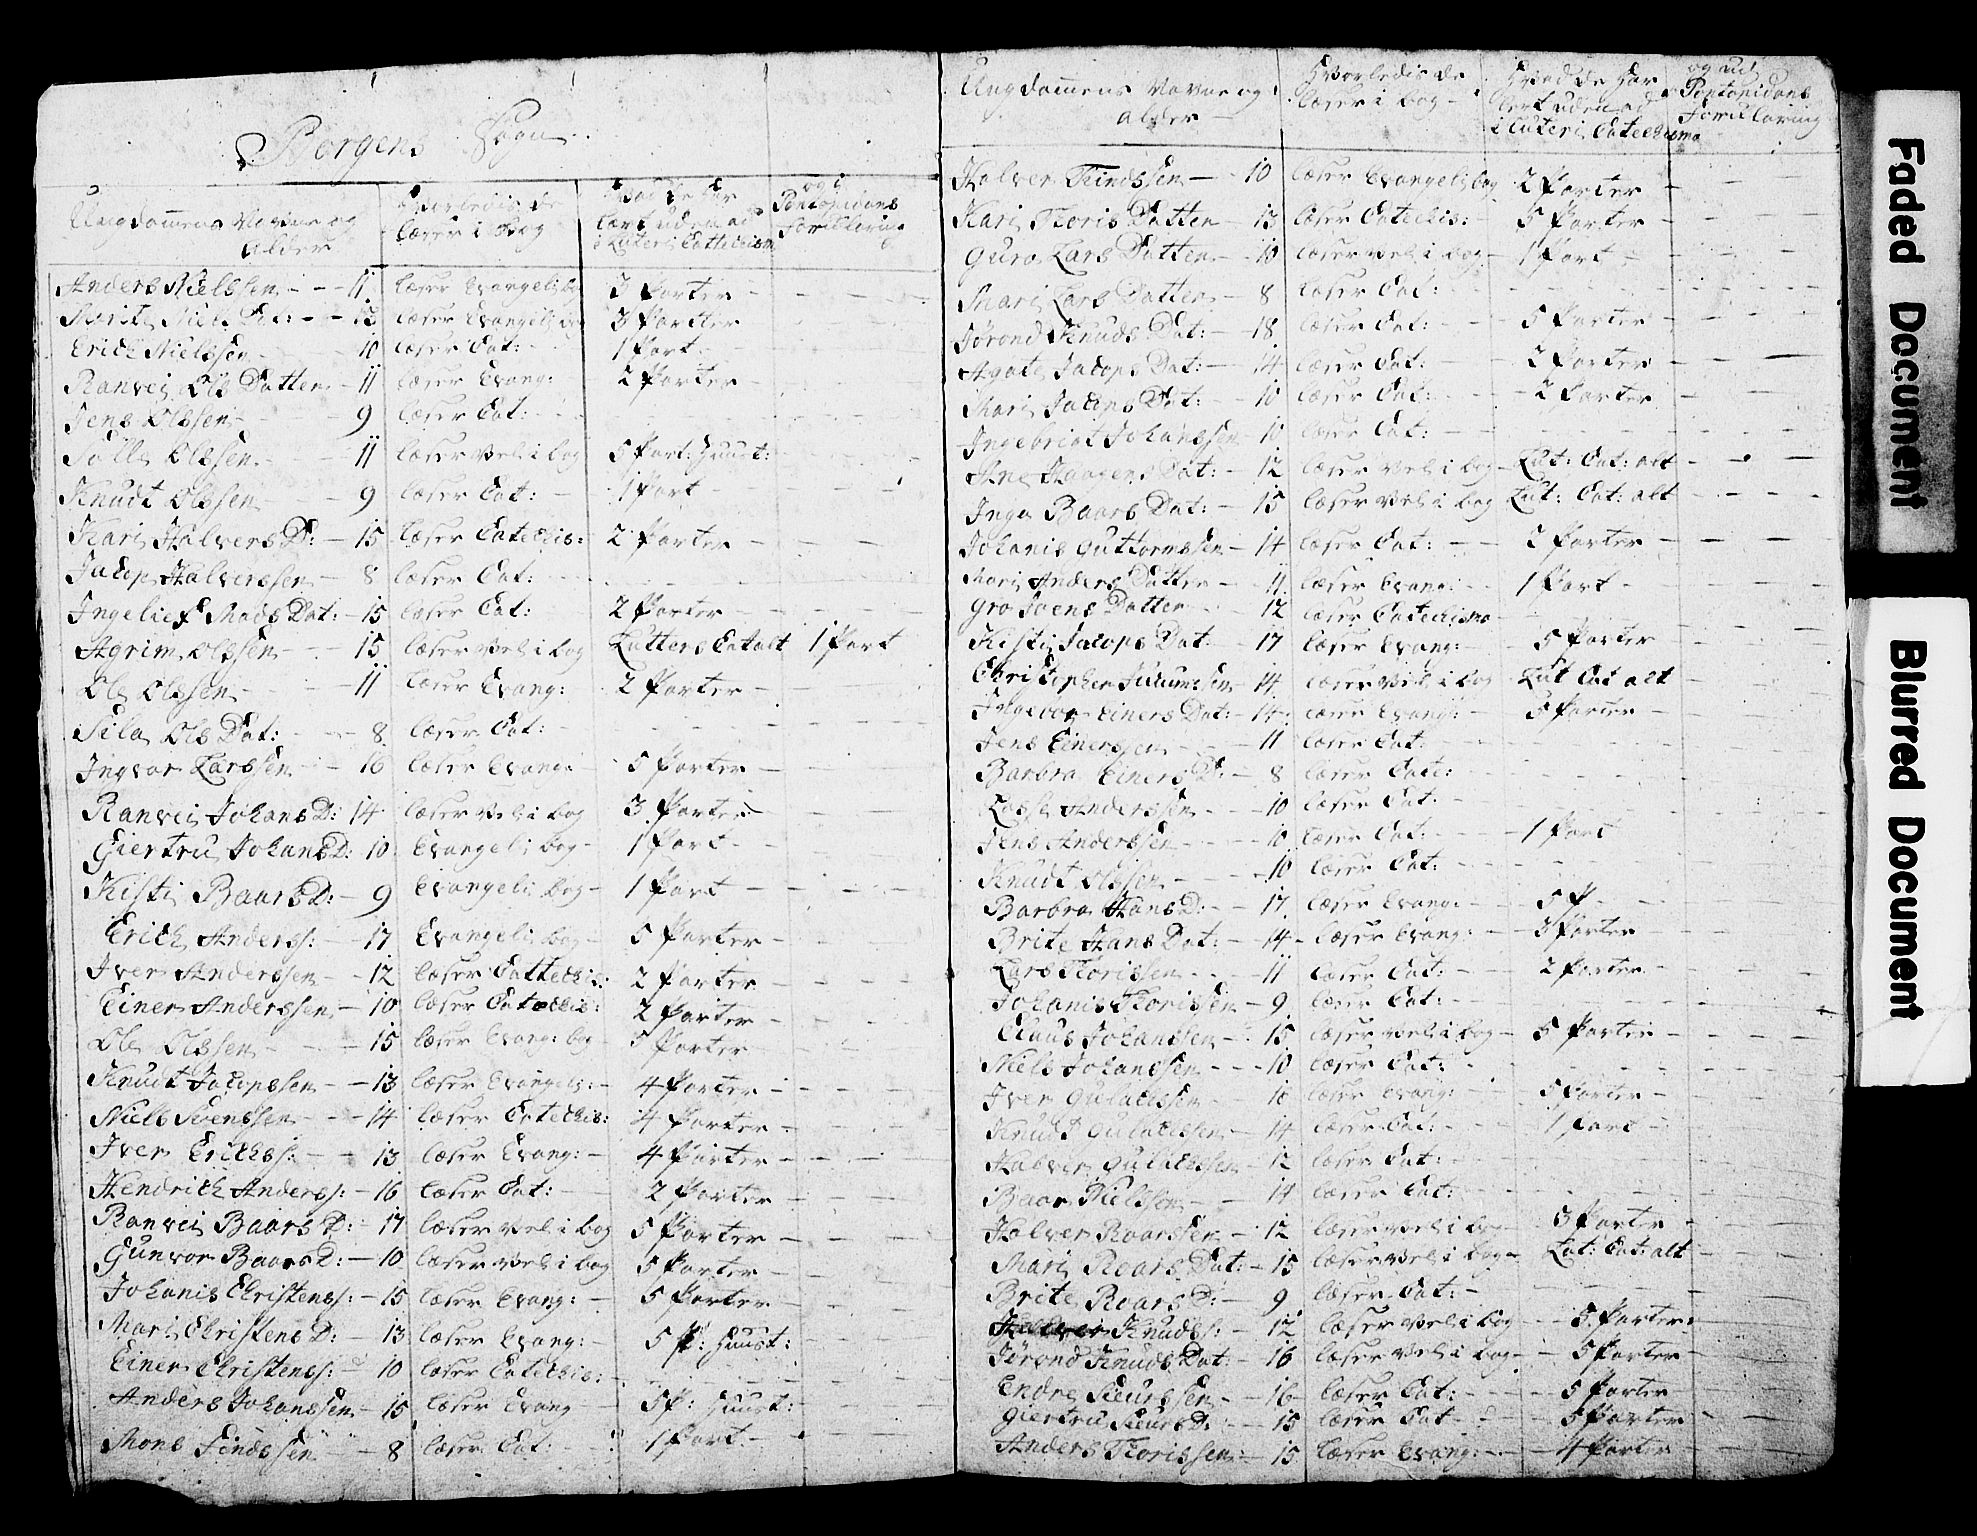 Borgens Sogn
Ungdommens Navne og Alder | Hvorledis de læser i Bog | Hvad de har lært uden ad i Luteri Cattechism | og i Pontopidans Forklaring
Anders Nielssen - - 11 læser Evangeli bog 3 Parter
Marit Niels Dat: - - 13 læser Evangeli bog 3 Parter
Erich Nielssen 10 læser Cat: 1 Part
Ranvei Ols Datter - 11 læser Evang: 2 Parter
Jens Olssen - 9 læser Cat:
Olssen - 11 læser vel i bog 5 Part: Huust:
Knudt Olssen 9 læser Cat: 1 Part
Kari Halvers D: - 15 læser Catechis: 2 Parter
Jacop Halverssen - 8 læser Cat:
Ingelief Mads Dat: - 15 læser Cat: 2 Parter
Agrim Olssen - 15 læser vel i bog Lutters Cat alt 1 Part
Ole Olssen - 11 læser Evang: 2 Parter
Sila Ols Dat: - 8 læser Cat:
Ingvor Larssen - 16 læser Evang: 5 Parter
Ranvei Johans D: 14 læser vel i bog 3 Parter
Giertru Johans D: 10 Evangeli bog - 1 Part
Kisti Baars D: - 9 Evangeli bog - 1 Part
Erich Anderss: - 17 Evangeli bog - 5 Parter
Iver Anderssen - 12 læser Cattechis: 2 Parter
Einer Anderssen - 10 læser Catechis: 2 Parter
Ole Olssen - 15 læser Evang: bog 5 Parter
Knudt Jacopssen - 13 læser Evangeli: - 4 Parter
Niels Svenssen - 14 læser Catechis: 4 Parter
Iver Erichss: - 13 læser Evang: - 4 Parter
Hendrich Anderss: - 16 læser Cat: 2 Parter
Ranvei Baars D: - 17 læser vel i bog 5 Parter
Gunvor Baars D: - 10 læser vel i bog 5 Parter
Johanis Christenss: - 15 læser Evang: - 5 Parter
Mari Christens D: - 13 læser Evang: - 5 P: Huust:
Einer Christenss: - 10 læser Catechis:
Anders Johanssen - 15 læser Evang - 5 P: Huust:
Mons Findssen - 8 læser Cat: 1 Part
Ungdommens Navne og Alder | Hvorledis de læser i bog | Hvad de har lært uden ad i Luteri Catechismo | og ud Pontopidans Forklaring
Halver Findssen - 10 læser Evangeli bog 2 Parter
Kari Thoris Datter 13 læser Catechis: 5 Parter
Guro Lars Datter - 10 læser vel i bog - 1 Part
Mari Lars Datter - 8 læser Cat:
Jørond Knuds Dat: - 18 læser Cat: 5 Parter
Agate Jacops Dat: - 14 læser Cat: 2 Parter
Mari Jacops Dat: - 10 læser Cat: 2 Parter
Ingebrigt Johanssen 10 læser Cat:
Ane Haagens Dat: - 12 læser vel i bog - Lut: Cat: alt
Inga Baars Dat: - 15 læser vel i bog Lut: Cat: alt
Johanis Guttormssen - 14 læser Cat: 2 Parter
Mari Anders Datter - 11 læser Evang: 1 Part
Gro Svens Datter 12 læser Catechismo
Kisti Jacops Dat - 17 læser Evang: 5 Parter
Christopher 14 læser vel i bog Lut Cat alt
Ingebor Einers Dat: - 14 læser Evang: 5 Parter
Jens Einerssen - 11 læser Cat:
Barbra Einers D: - 8 læser Cate:
Lasse Anderssen - 10 læser Cat:
Jens Anderssen - 10 læser Cat: 1 Part
Knudt Olssen - 10 læser Cat:
Barbra Hans D: - 17 læser Evang: 5 P
Brite Hans Dat: - 14 - læser Evang: - 3 Parter
Lars Thorissen - 11 læser Cat: 2 Parter
Johanis Thorissen - 9 læser Cat:
Claus Johanssen - 15 læser vel i bog - 5 Parter
Niels Johanssen - 10 læser Cat:
Iver Gulachssen - 16 læser Evang: 5 Parter
Knudt Gulachssen - 14 læser Cat: 1 Part
Halver Gulachssen - 12 læser Cat:
Baar Nielssen 14 læser Cat:
Halver Roarssen - 12 læser vel i bog 3 Parter
Mari Roars Dat: - 15 læser vel i bog - Lut: Cat: alt
Brite Roars D: - 9 læser Cat: -
Knudss: - 12 læser vel i bog - 3 Parter:
Jørond Knuds Dat: - 16 læser vel i bog - 5 Parter
Endre 16 læser Cat: 5 Parter
Giertru 15 læser Cat 5 Parter
Anders Thorissen - 15 læser Evang: - 4 Parter
Faded Document
Blurred Document